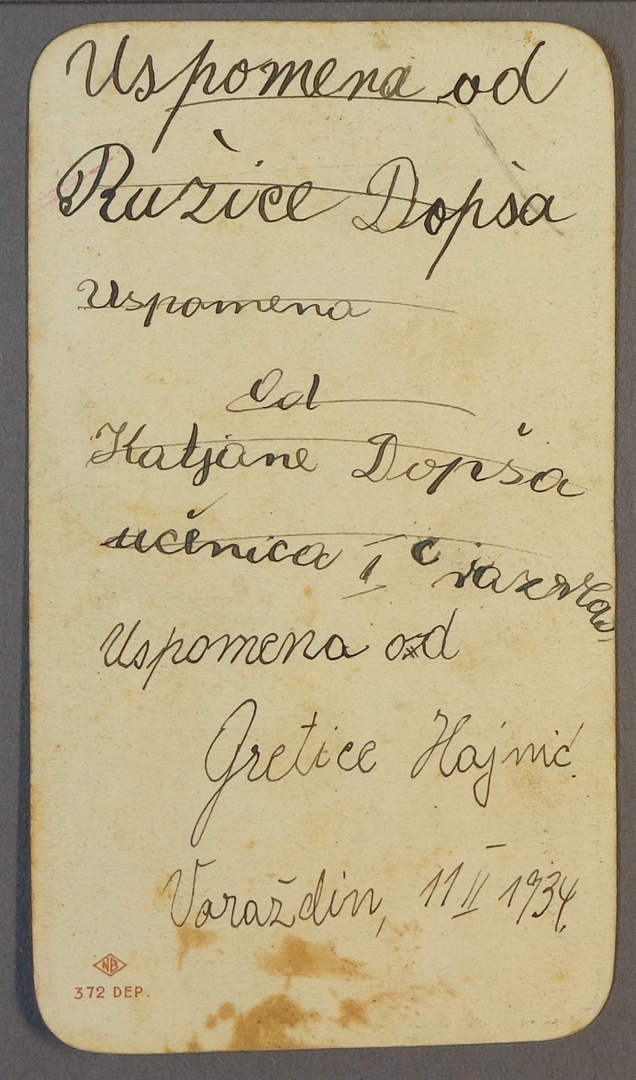 Uspomena od
Ružice Dopša
Uspomena
Od
Katjane Dopša
učenica I c razreda
Uspomena od
Gretice Hajnić
Varaždin, 11 II 1934.
NB
372 DEP.